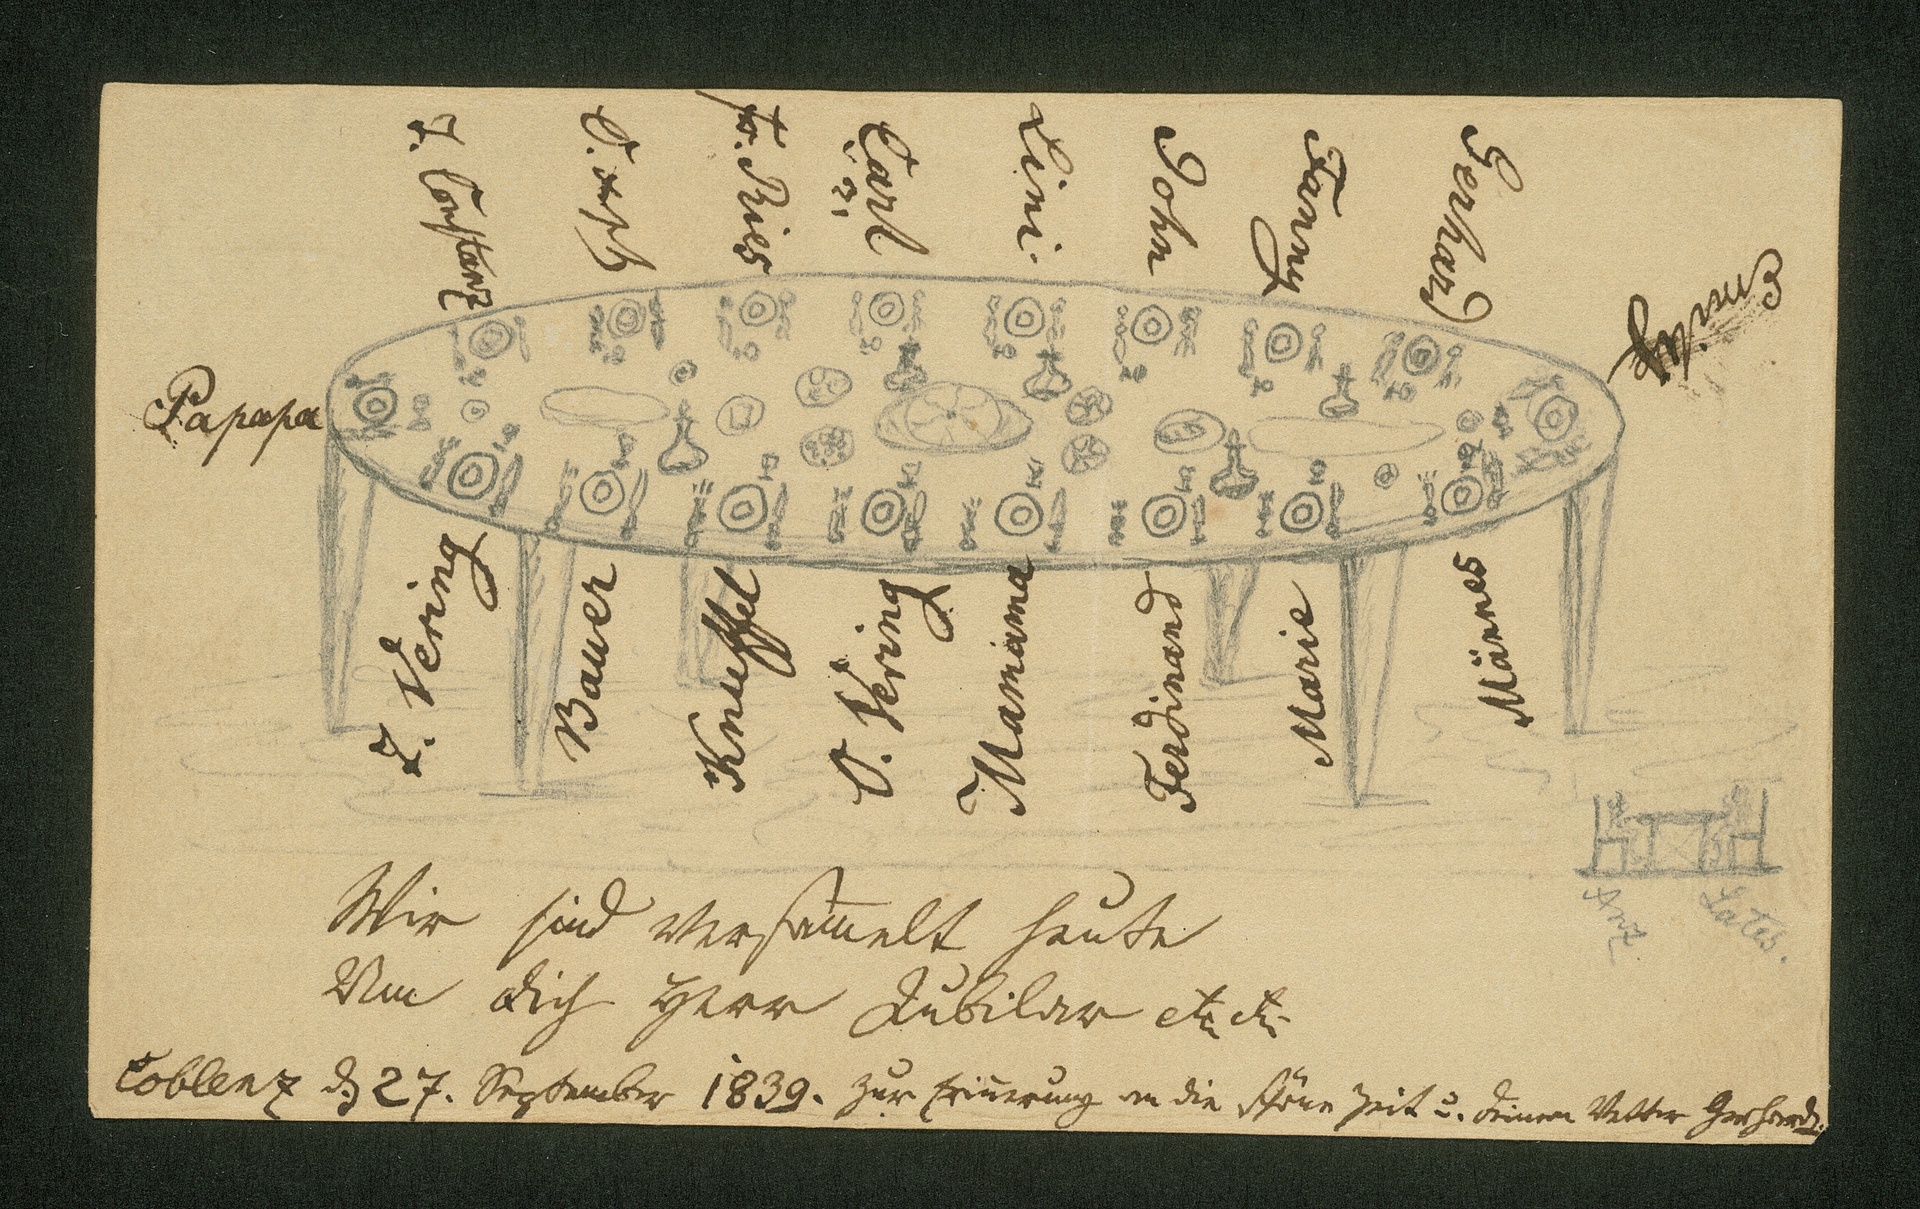 J. Constanz
O. Joseph
Fr. Ries
Carl
i. 2.
Lini.
John
Fanny
Gerhard
Emil
Papapa
J. Vering
Bauer
Knueffel
O. Vering
Mamama
Ferdinand
Marie
Männes
Wir sind versam̅elt heute
Um dich Herr Jubilar etc etc
Coblenz d 27. September 1839. Zur Erin̅erung an die schöne Zeit u. deinen Vetter Gerhard.